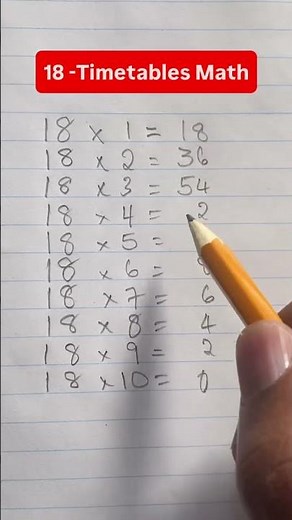 18 -Timetables Math
18 × 1 = 18
18 × 2 = 36
18 × 3 = 54
18 × 4 = 2
18 × 5 =
18 × 6 = 8
18 × 7 = 6
18 × 8 = 4
18 × 9 = 2
18 × 10 = 0